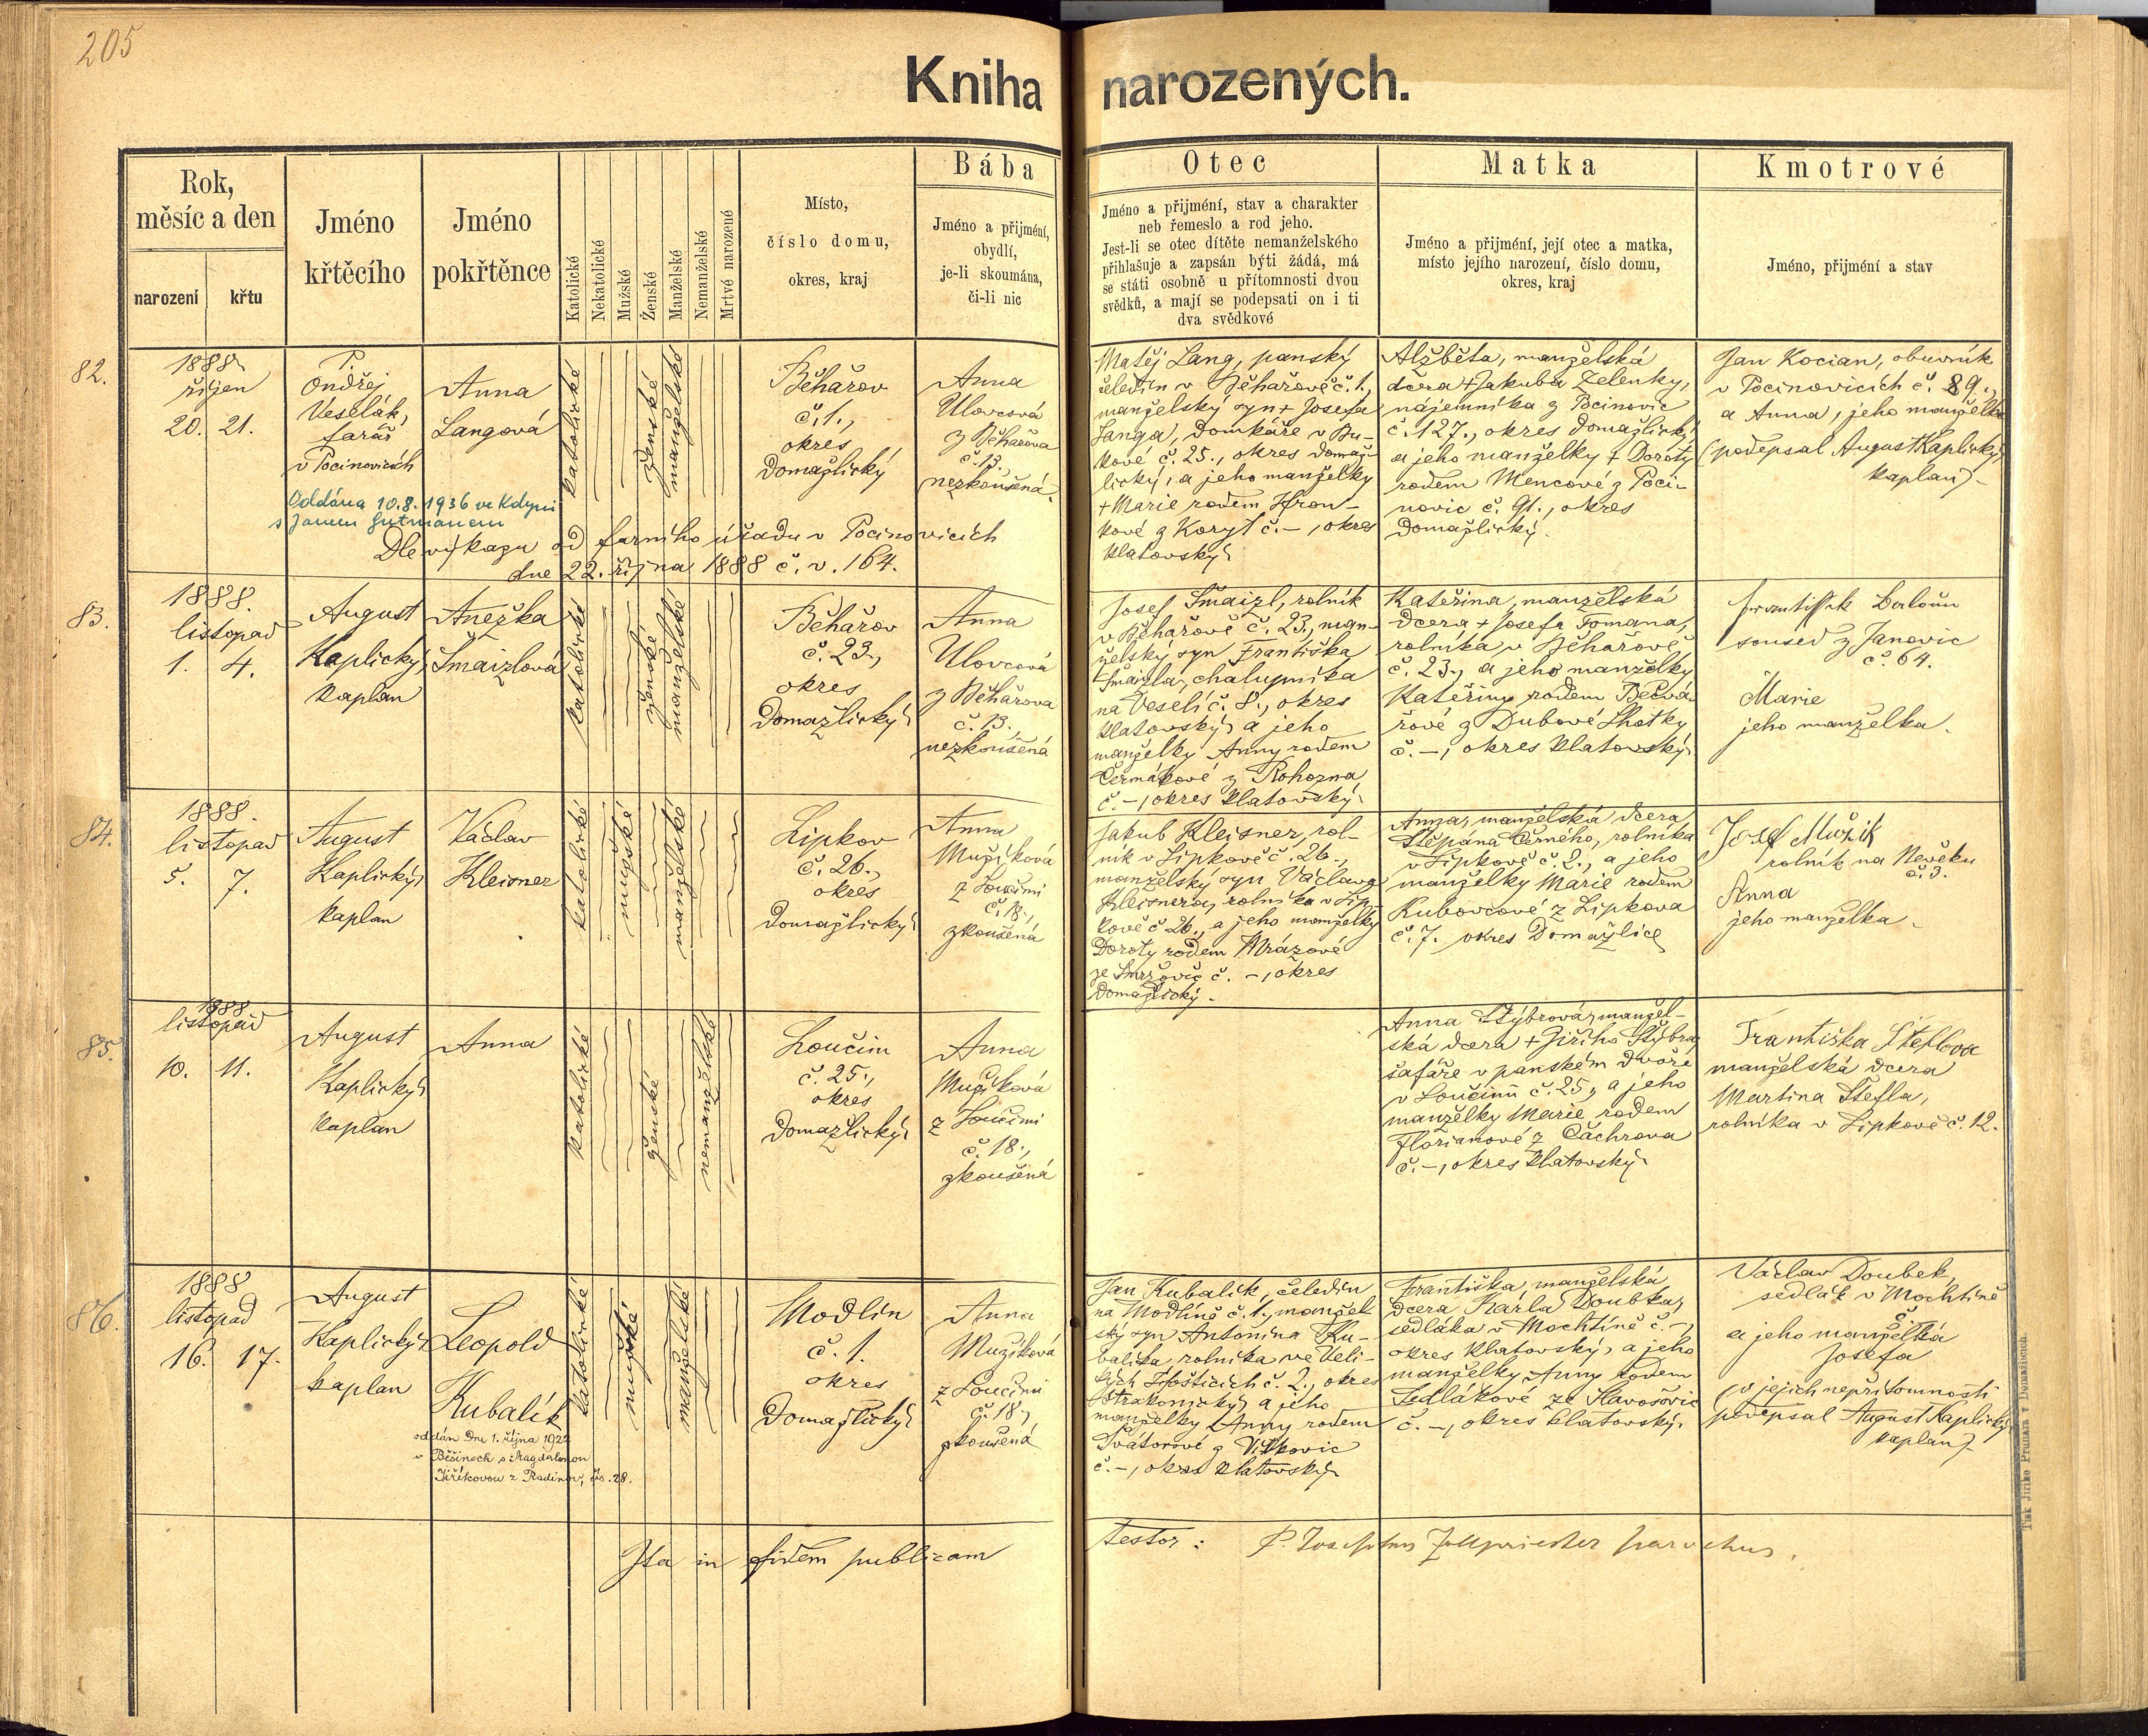 205
Kniha narozených.
Rok,
měsíc a den
narození
křtu
Jméno
křtěcího
Jméno
pokřtěnce
Katolické
Nekatolické
Mužské
Ženské
Manželské
Nemanželské
Mrtvé narozené
Místo,
číslo domu,
okres, kraj
Bába
Jméno a přijmění,
obydlí,
je-li skoumána,
či-li nic
Otec
Jméno a přijmění, stav a charakter
neb řemeslo a rod jeho.
Jest-li se otec dítěte nemanželského
přihlašuje a zapsán býti žádá, má
se státi osobně u přítomnosti dvou
svědků, a mají se podepsati on i ti
dva svědkové
Matka
Jméno a přijmění, její otec a matka,
místo jejího narození, číslo domu,
okres, kraj
Kmotrové
Jméno, přijmění a stav
82.
1888
říjen
20. 21.
P.
Ondřej
Veselák,
farář
v Pocinovicích
Anna
Langová
katolické
ženské
manželské
Běhařov
č. 1.,
okres
Domažlický
Anna
Ulovcová
z Běhařova
č. 13.
nezkoušená.
Oddána 10.8.1936 ve Kdyni
s Janem Gutmanem
Dle výkazu od farního úřadu v Pocinovicích
dne 22. října 1888 č. v. 164.
Matěj Lang, panský
čeledín v Běhařově č. 1.,
manželský syn + Josefa
Langa, domkáře v Bu-
kové č. 25., okres Domaž-
lický, a jeho manželky
+ Marie rodem Hron-
kové z Koryt č. –, okres
Klatovský.
Alžběta, manželská
dcera + Jakuba Zelenky,
nájemníka z Pocinovic
č. 127., okres Domažlický
a jeho manželky + Doroty
rodem Mencové z Poci-
novic č. 91., okres
Domažlický.
Jan Kocian, obuvník
v Pocinovicích č. 89.,
a Anna, jeho manželka
(podepsal August Kaplický,
kaplan).
83.
1888.
listopad
1. 4.
August
Kaplický,
kaplan
Anežka
Šmaizlová
katolické
ženské
manželské
Běhařov
č. 23.,
okres
Domažlický
Anna
Ulovcová
z Běhařova
č. 13.,
nezkoušená
Josef Šmaizl, rolník
v Běhařově č. 23., man-
želský syn Františka
Šmaizla, chalupníka
na Veselí č. 8., okres
Klatovský, a jeho
manželky Anny rodem
Čermákové z Rohozna
č. –, okres Klatovský.
Kateřina, manželská
dcera + Josefa Tomana,
rolníka v Běhařově
č. 23., a jeho manželky
Kateřiny rodem Bečvá-
řové z Dubové Lhotky
č. –, okres Klatovský.
František
soused z Janovic
č. 64.
Marie
jeho manželka.
84.
1888.
listopad
5. 7.
August
Kaplický,
kaplan
Václav
Kleisner
katolické
mužské
manželské
Lipkov
č. 26.,
okres
Domažlický
Anna
Mužíková
z Loučimi
č. 18.,
zkoušená
Jakub Kleisner, rol-
ník v Lipkově č. 26.,
manželský syn Václava
Kleisnera, rolníka v Lip-
kově č. 26., a jeho manželky
Doroty rodem Mrázové
ze Smržovic č. –, okres
Domažlický.
Anna, manželská dcera
Štěpána Černého, rolníka
v Lipkově č. 2., a jeho
manželky Marie rodem
Kubovcové z Lipkova
č. 7. okres Domažlice
Josef Mužik
rolník na Nevěku
č. 3.
Anna
jeho manželka.
85.
1888
listopad
10. 11.
August
Kaplický,
kaplan
Anna
katolické
ženské
nemanželské
Loučim
č. 25.,
okres
Domažlický
Anna
Mužíková
z Loučimi
č. 18.,
zkoušená
Anna Stýbrová, manžel-
ská dcera + Jiřího Stýbra,
šafáře v panském dvoře
v Loučimi č. 25., a jeho
manželky Marie rodem
Florianové z Čachrova
č. –, okres Klatovský.
Františka Šteflova
manželská dcera
Martina Štefla,
rolníka v Lipkově č. 12.
86.
1888
listopad
16. 17.
August
Kaplický,
kaplan
Leopold
Kubalík
oddán dne 1. října 1922
v Běšinech s Magdalenou
Jiříkovou z Radinov, čís. 28.
katolické
mužské
manželské
Modlín
č. 1.
okres
Domažlický
Anna
Mužíková
z Loučimi
č. 18.,
zkoušená
Jan Kubalík, čeledín
na Modlíně č. 1., manžel-
ský syn Antonína Ku-
balíka rolníka ve Veli-
kých Hošticích č. 2., okres
Strakonický, a jeho
manželky Anny rodem
Svátorové z Vítkovic
č. –, okres Klatovský.
Františka, manželská
dcera Karla Doubka,
sedláka v Mochtíně č. –,
okres Klatovský, a jeho
manželky Anny rodem
Sedlákové ze Slavošovic
č. –, okres Klatovský.
Václav Doubek,
sedlák v Mochtíně
č. –
a jeho manželka
Josefa
(v jejich nepřítomnosti
podepsal August Kaplický,
kaplan).
Ita in fidem publicam testor: P. Josephus Zollpriester parochus.
Tisk Jiřího Prunara v Domažlicích.